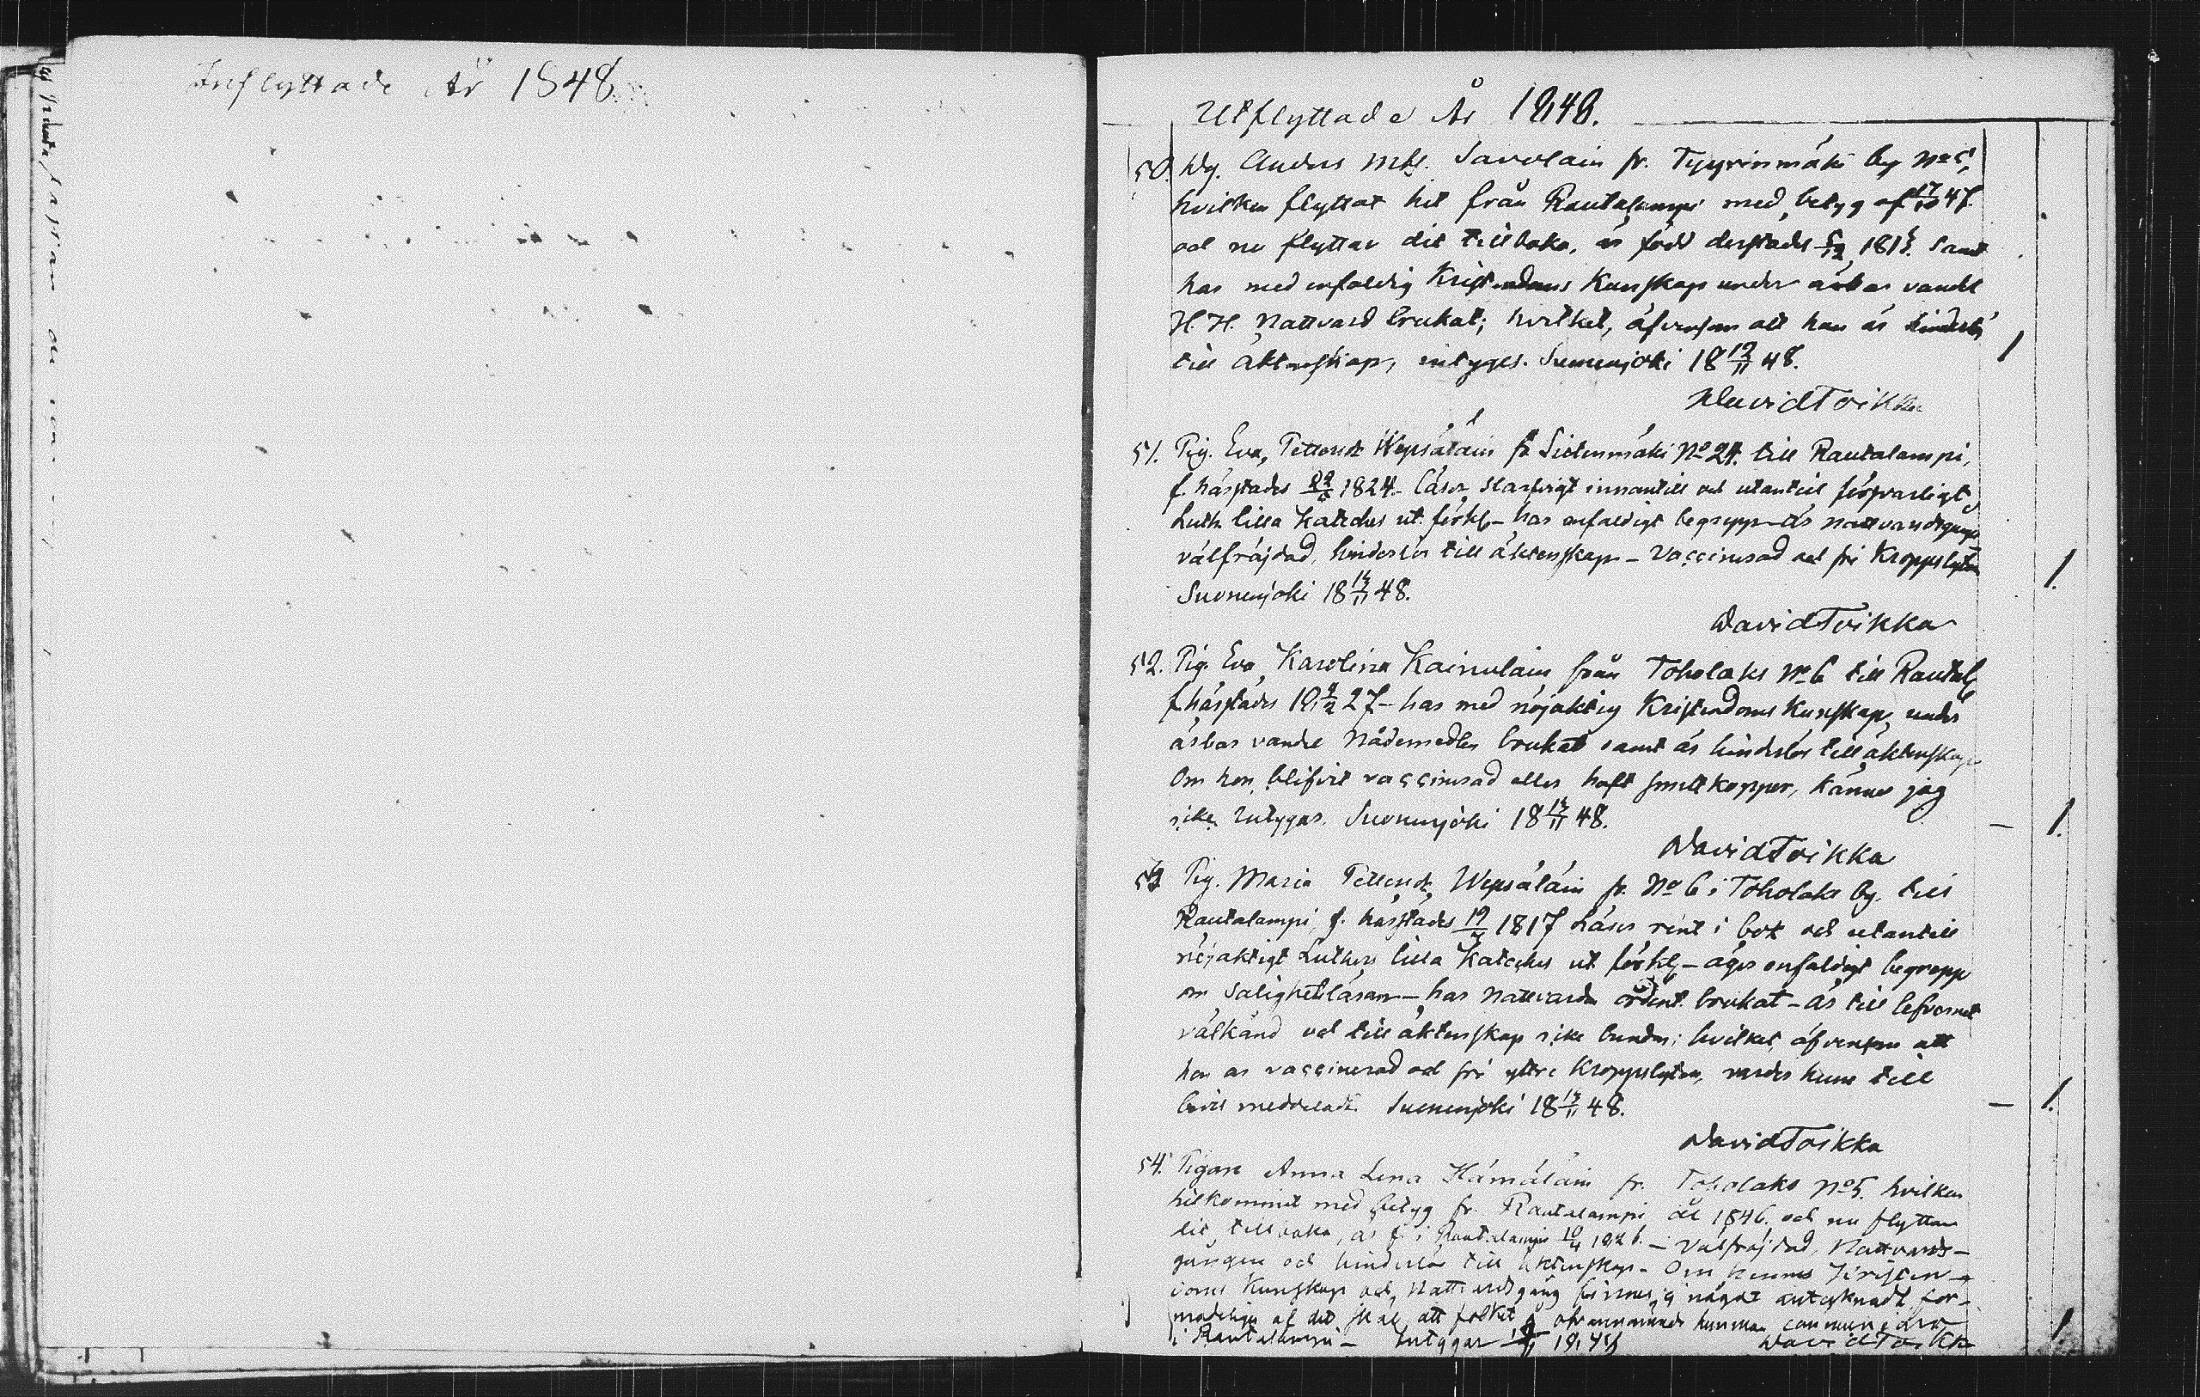 Inflyttade År 1848
Utflyttade År 1848.
50. Dg. Anders Mts. Savolain fr. Tyyrinmäki by No 5,
hvilken flyttat hit från Rautalampi med betyg af 17/10 47.
och nu flyttar dit tillbaka, är född derstädes 5/12 1815. samt
har med enfaldig Kristendoms Kunskap under ärbar vandel
H. H. Nattvard brukat; hvilket, äfvensom att han är hinderlös
till äktenskap, intygas. Suonenjoki 18 12/11 48.
1
David Toikka
51. Pig. Eva, Pettersdr Wepsäläin fr Lietenmäki No 24. till Rautalampi,
f. härstädes 22/5 1824 - läser slarfvigt innantill och utantill försvarligt
Luth. lilla Kateches ut. förkl - har enfaldigt begrepp - är nattvardsgången
välfräjdad, hinderlös till äktenskap - Vaccinerad och fri Kroppslyten
Suonenjoki 18 14/11 48.
1.
David Toikka
52. Pig. Eva Karolina Kainulain från Toholaks No 6 till Rautal.
f. härstädes 18 9/2 27 - har med nöjaktig Kristendoms Kunskap, under
ärbar vandel Nådemedlen brukat samt är hinderlös till äktenskap
Om hon blifvit vaccinerad eller haft smittkoppor, känner jag
icke. Intygas. Suonenjoki 18 14/11 48.
- 1.
David Toikka
53 Pig. Maria Pettersdr, Wepsäläin fr. No 6 i Toholaks by. till
Rautalampi f. härstädes 19/7 1817 Läser rent i bok och utantill
nöjaktigt Luthers lilla Kateches ut förkl - äger enfaldigt begrepp
om Salighetsläran - har nattvarden ordent. brukat - är till lefvernet
välkänd och till äktenskap icke bunden; hvilket, äfvensom att
hon är vaccinerad och fri yttre Kroppslyten, varder henne till
bevis meddeladt. Suonenjoki 18 14/11 48.
- 1.
David Toikka
54. Pigan Anna Lena Hämäläin fr. Toholaks No 5. hvilken
hitkommit med betyg fr. Rautalampi år 1846. och nu flyttar
dit tillbaka, är f. i Rautalampi 10/4 1826. - Välfräjdad, Nattvards-
gången och hinderlös till äktenskap - Om hennes Kristen-
doms Kunskap och Nattvardsgång finnes ej något antecknadt för-
modeligen af det skäl att folket i ofvannämnde hemman communicerar
i Rautalampi - Intygar 1848
1.
David Toikka